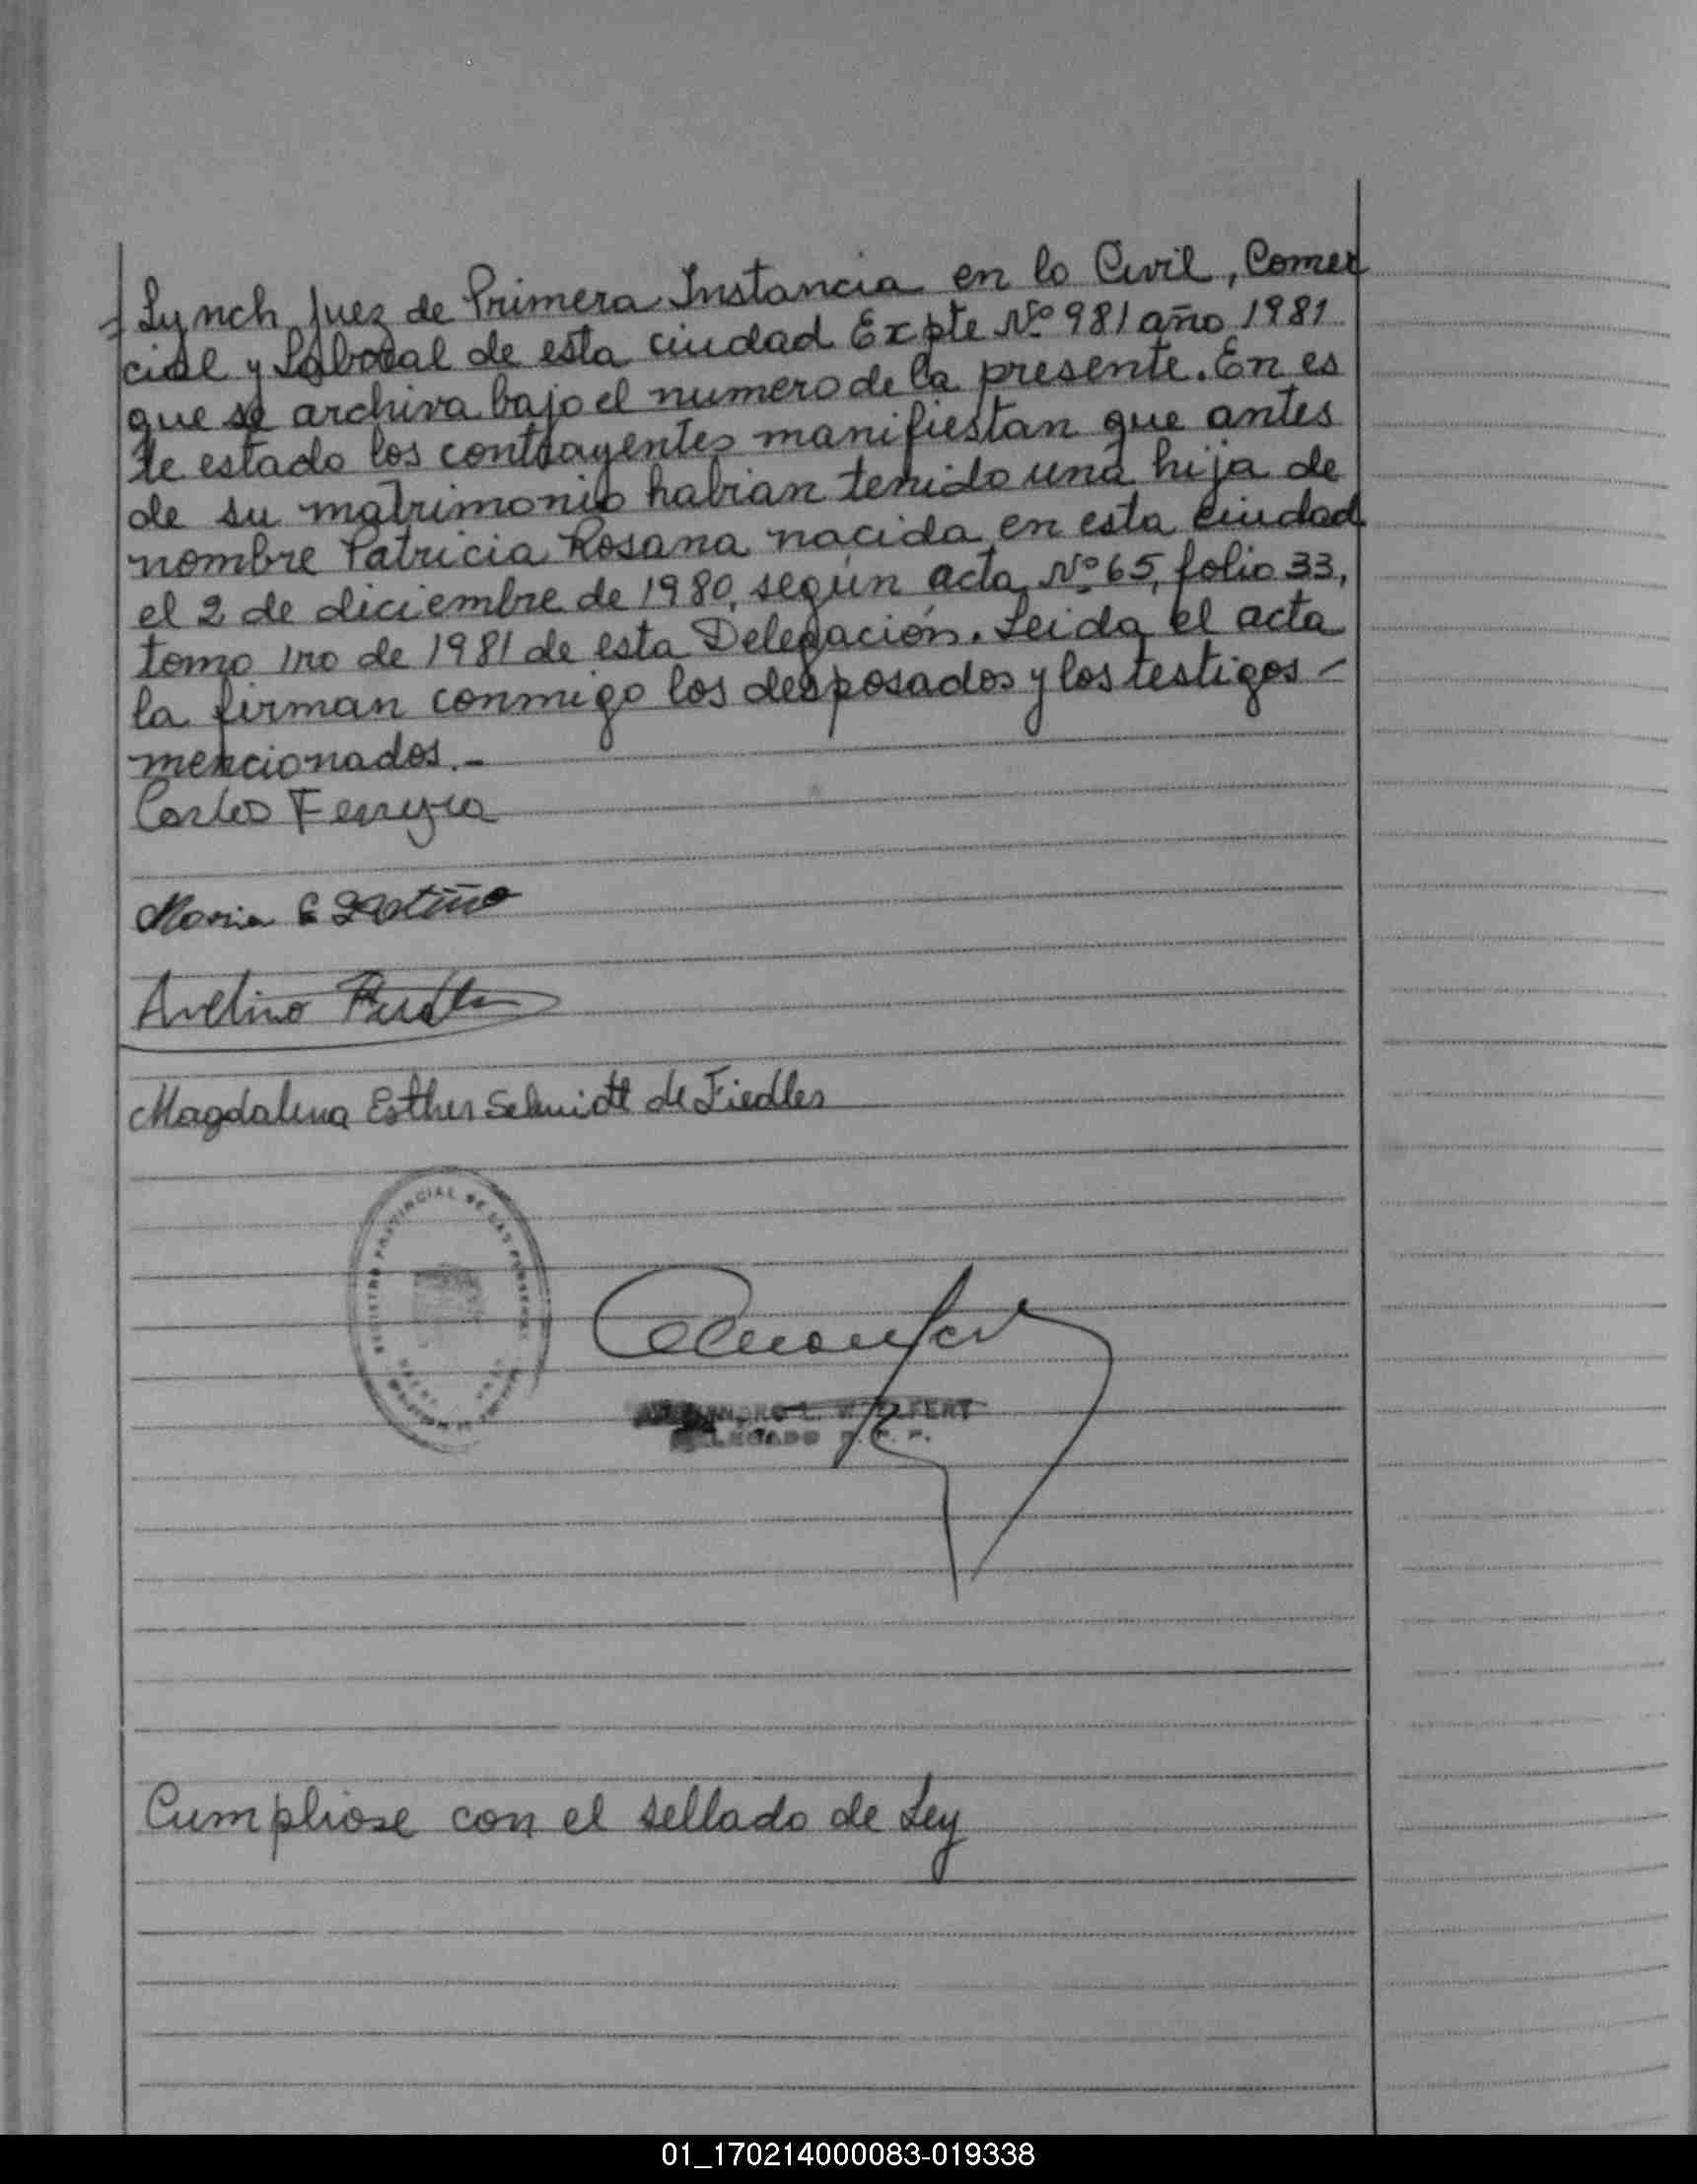 Lynch Juez de Primera Instancia en lo Civil, Comer
cial y Laboral de esta ciudad Expte Nº 981 año 1981
que se archiva bajo el numero de la presente. En es
te estado los contrayentes manifiestan que antes
de su matrimonio habian tenido una hija de
nombre Patricia Rosana nacida en esta ciudad
el 2 de diciembre de 1980, según acta Nº 65, folio 33,
tomo 1ro de 1981 de esta Delegación. Leida el acta
la firman conmigo los desposados y los testigos -
mencionados.-
Carlos Ferreyra
Maria
Avelino
Magdalena Esther Schmidt de Fiedler
REGISTRO PROVINCIAL DE LAS PERSONAS
Cumpliose con el sellado de Ley
01_170214000083-019338